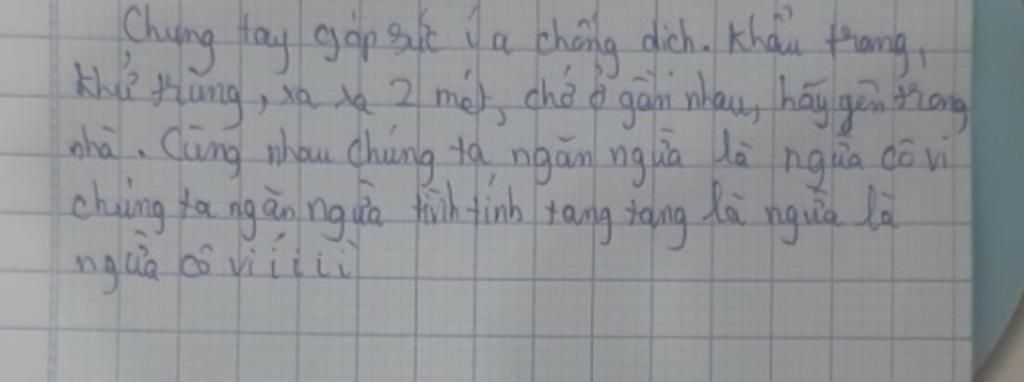 Chung tay góp sức ý a chống dịch. Khẩu trang,
khử trùng, xa xa 2 mét, chớ ở gần nhau, hãy gên trong
nhà. Cùng nhau chúng ta ngăn ngừa là ngừa cô vi
chúng ta ngăn ngừa tình tính tang tang là ngừa là
ngừa cô víiiii